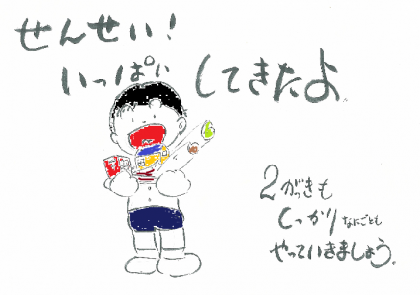 せんせい！
いっぱい してきたよ.
2がっきも
しっかり なにごとも
やっていきましょう。